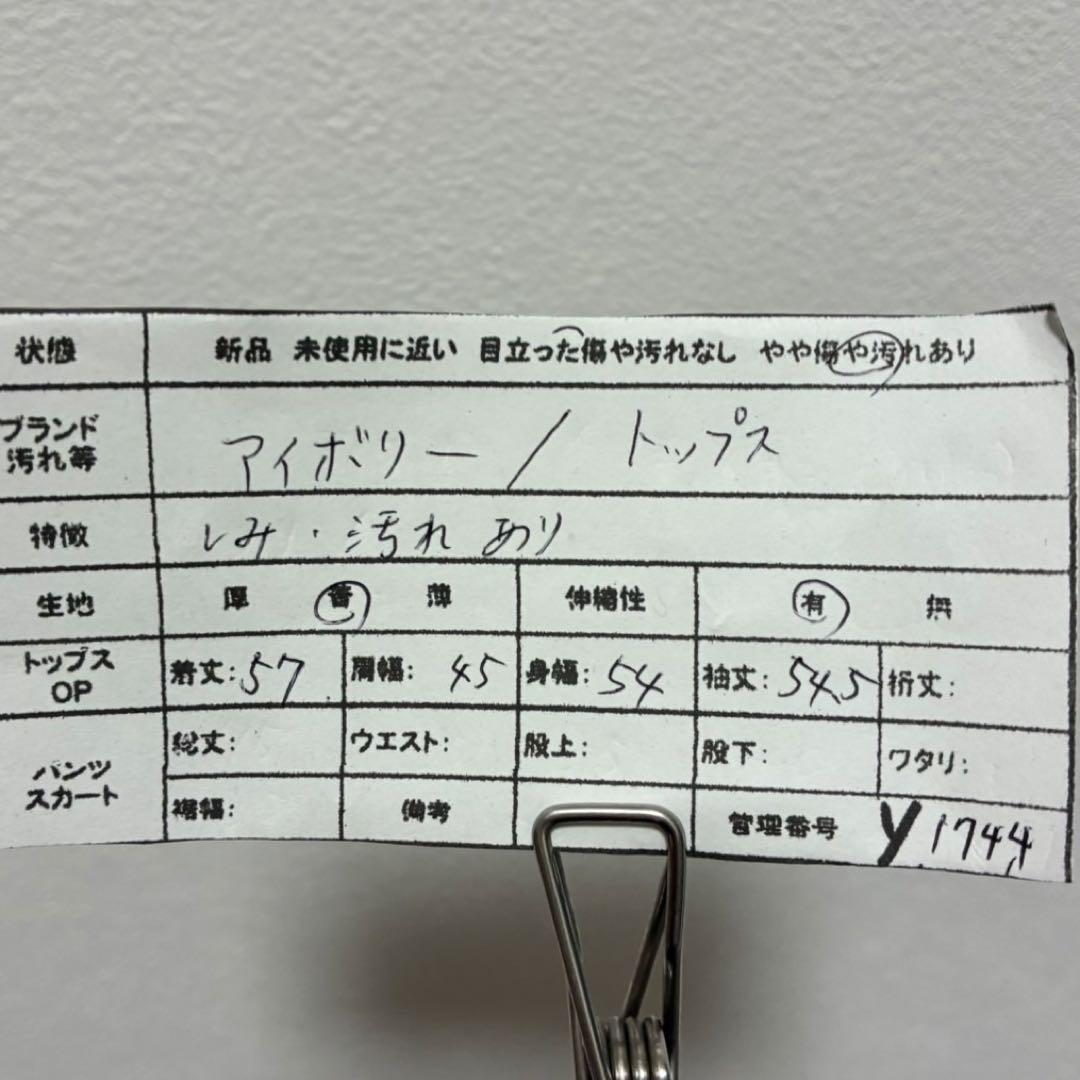 状態 新品 未使用に近い 目立った傷や汚れなし やや傷や汚れあり
ブランド
汚れ等
アイボリー / トップス
特徴 しみ・汚れあり
生地 厚 普 薄 伸縮性 有 無
トップス
OP
着丈:57 肩幅:45 身幅:54 袖丈:54.5 裄丈:
パンツ
スカート
総丈: ウエスト: 股上: 股下: ワタリ:
裾幅: 備考 管理番号 y1744